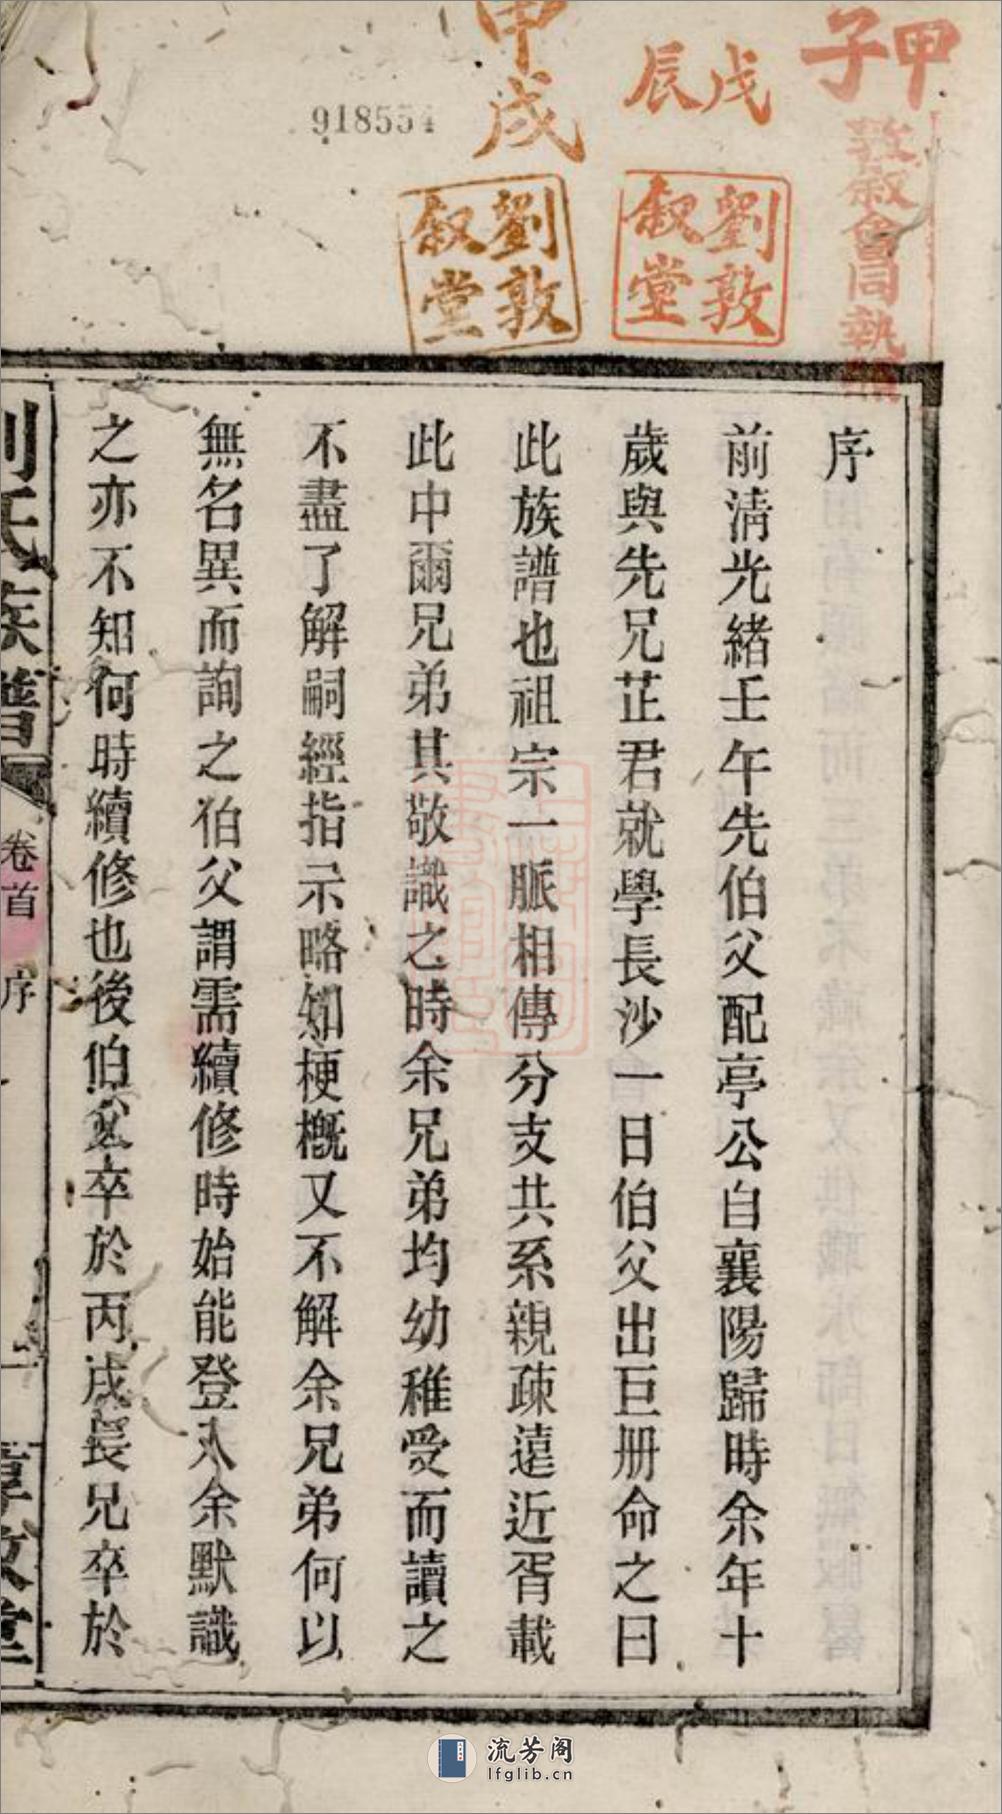 甲子
敦敘會同執
戊辰
劉敦敘堂
甲戌
劉敦敘堂
918554
序
前清光緒壬午先伯父配亭公自襄陽歸時余年十
歲與先兄芷君就學長沙一日伯父出巨册命之曰
此族譜也祖宗一脈相傳分支共系親疎遠近胥載
此中爾兄弟其敬識之時余兄弟均幼稚受而讀之
不盡了解嗣經指示略知梗概又不解余兄弟何以
無名異而詢之伯父謂需續修時始能登入余默識
之亦不知何時續修也後伯父卒於丙戌長兄卒於
劉氏族譜
卷首
序
一
敦敘堂
流芳阁
lfglib.cn